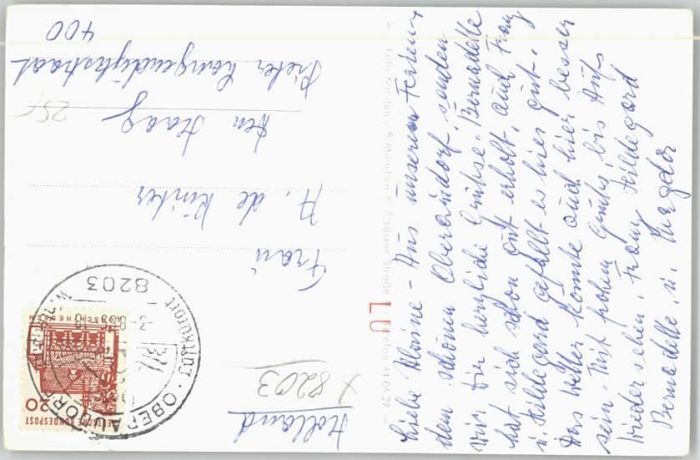 Liebe Kleine - Aus unserem Ferien,
dem schönen Oberaudorf, senden
wir Dir herzliche Grüsse. Bernadette
hat sich schon gut erholt, auch Franz
u. Hildegard gefällt es hier gut.
Das Wetter könnte auch hier besser
sein. Mit frohem Gruß, bis Aufs
Wiedersehen, Franz, Hildegard
Bernadette, u. Magda
Holland
x 8203
Frau
A. de
den Haag
Pieter Langendijkstraat
400
25,-
LU
8203
OBERAUDORF
Luftkurort
20
DEUTSCHE BUNDESPOST